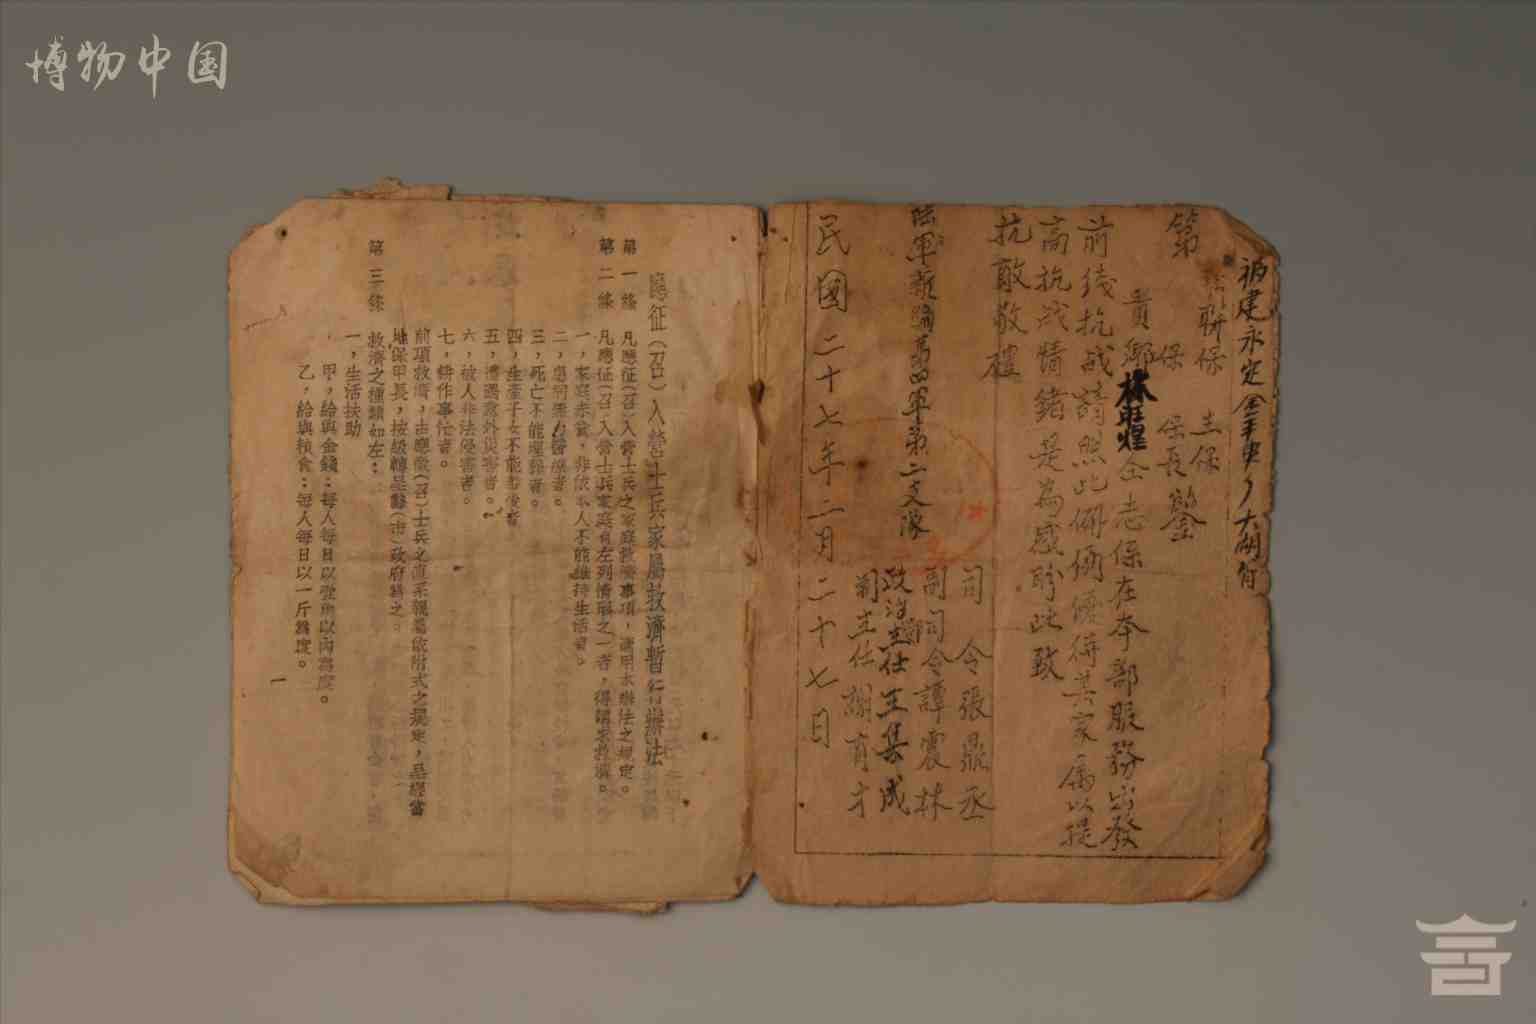 博物中国
福建永定金丰東
聯保主保
第 保 保長鑒
貴鄉林旺煌仝志係在本部服務出發
前綫抗战請照此優待其家屬以提
高抗战情緒是為感盼此致
抗敵敬禮
司令張鼎丞
副司令譚震林
陸軍新編第四軍第二支隊
政治部主任王集成
副主任謝育才
民國二十七年二月二十七日
應征(召)入營士兵家屬救濟暫行辦法
第一條 凡應征(召)入營士兵之家庭救濟事項,適用本辦法之規定。
第二條 凡應征(召)入營士兵家庭有左列情形之一者,得請求救濟。
一,家庭赤貧,非依本人不能維持生活者。
二,患病無力醫療者。
三,死亡不能埋葬者。
四,生產子女不能養者
五,遭遇意外災害者。
六,被人非法侵害者。
七,耕作事忙者。
前項救濟,由應徵(召)士兵之直系親屬依附式之規定,呈經當
地保甲長,按級轉呈縣(市)政府籌之。
第三條 救濟之種類如左:
一,生活扶助
甲,給與金錢:每人每日以壹角以內為度。
乙,給與粮食:每人每日以一斤為度。
一